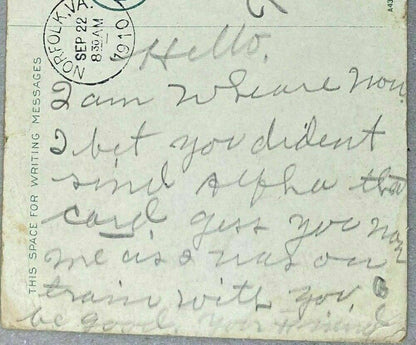 NORFOLK, VA.
SEP 22
8 30 AM
1910
A43
THIS SPACE FOR WRITING MESSAGES
Hello.
I am wheare now
I bet you dident
sind Alpha that
card. gess you now
me as I was on
train with you.
be good. your Friend